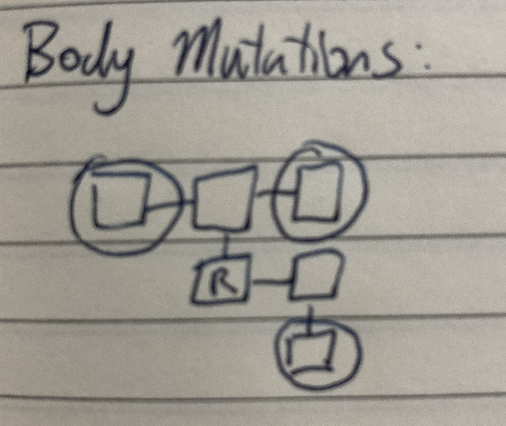 Body Mutations:
R